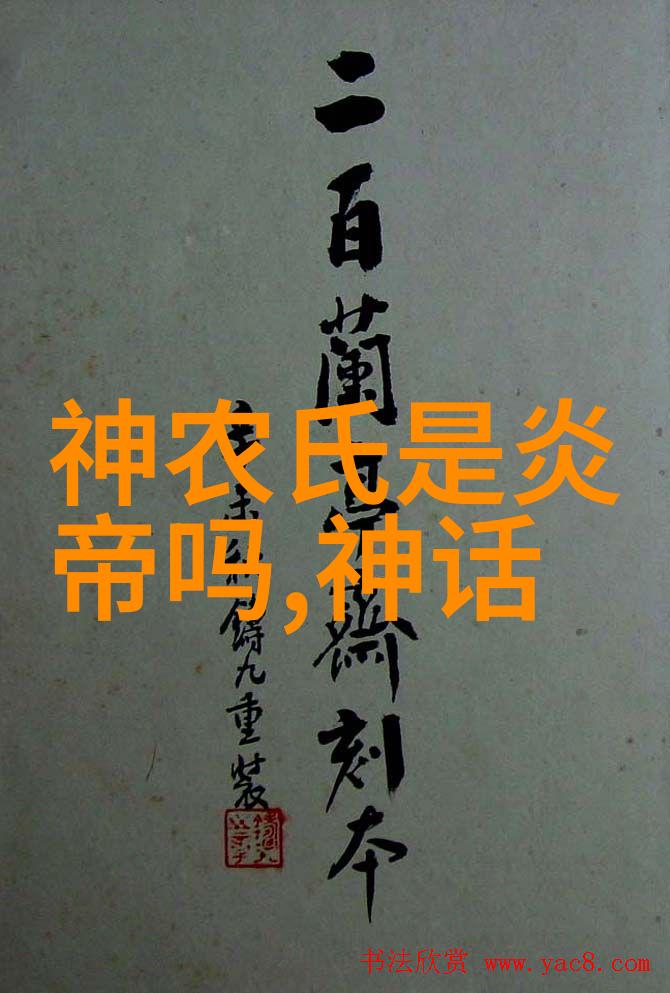 二百蘭亭齋刻本
未 九重裝
神农氏是炎
帝吗,神话
书法欣赏 www.yac8.com